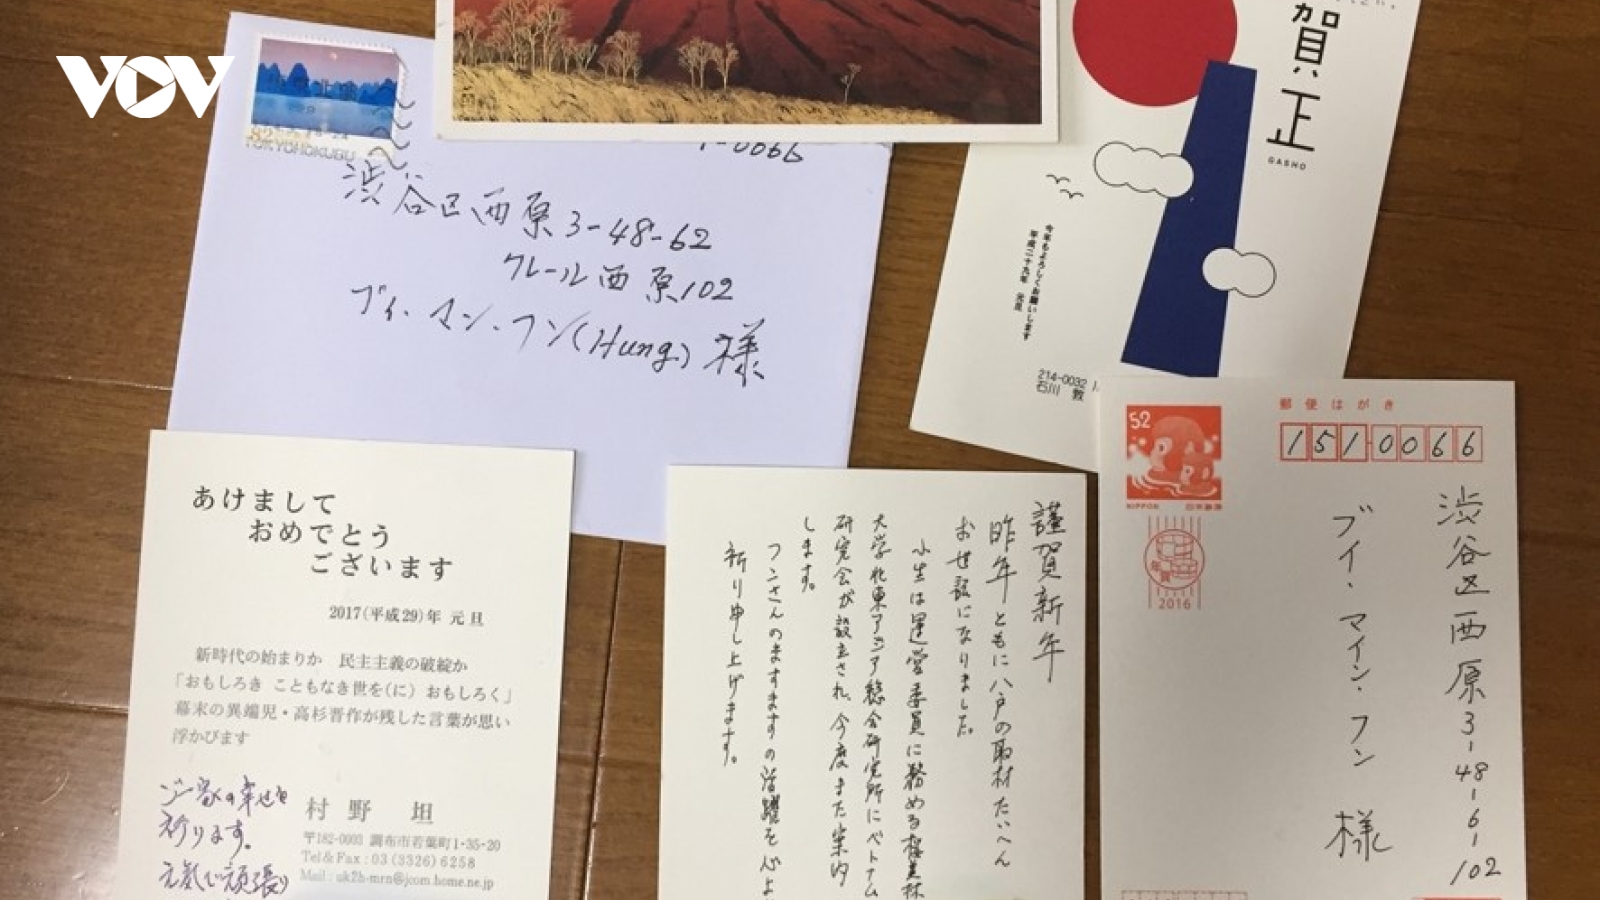 VOV
82
TOKYOHOKUBU
〒-0066
渋谷区西原3-48-62
クレール西原102
ブイ・マン・フン(Hung) 様
賀正
GASHO
今年もよろしくお願いします
平成二十九年 元旦
214-0032
石川 教
あけまして
おめでとう
ございます
2017(平成29)年 元旦
新時代の始まりか 民主主義の破綻か
「おもしろき こともなき世を(に) おもしろく」
幕末の異端児・高杉晋作が残した言葉が思い
浮かびます
ご一家の幸せを
祈ります。
元気で頑張り
村野 坦
〒182-0003 調布市若葉町1-35-20
Tel&Fax:03(3326)6258
Mail:uk2h-mrn@jcom.home.ne.jp
謹賀新年
昨年ともに八戸の取材たいへん
お世話になりました。
小生は運営委員に務める桜美林
大学北東アジア総合研究所にベトナム
研究会が設立され、今度また案内
します。
フンさんのますますの活躍を心よ
祈り申し上げます。
郵便はがき
52
151-0066
NIPPON 日本郵便
年賀
2016
渋谷区西原3-48-6-102
ブイ・マイン・フン 様